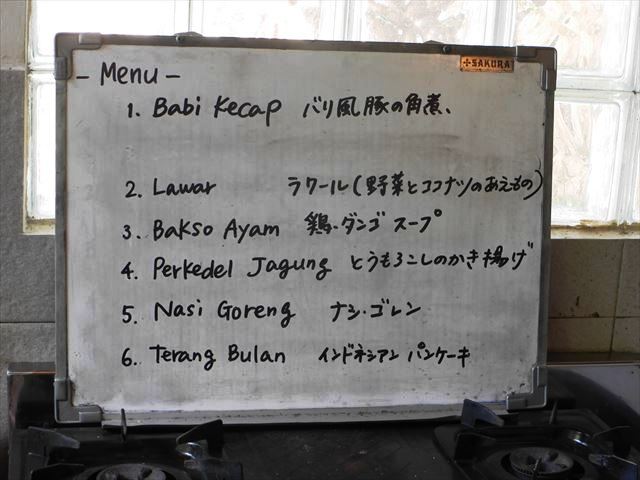 SAKURA
- Menu -
1. Babi Kecap バリ風豚の角煮、
2. Lawar ラワール(野菜とココナツのあえもの)
3. Bakso Ayam 鶏・ダンゴ スープ
4. Perkedel Jagung とうもろこしのかき揚げ
5. Nasi Goreng ナシ・ゴレン
6. Terang Bulan インドネシアン パンケーキ